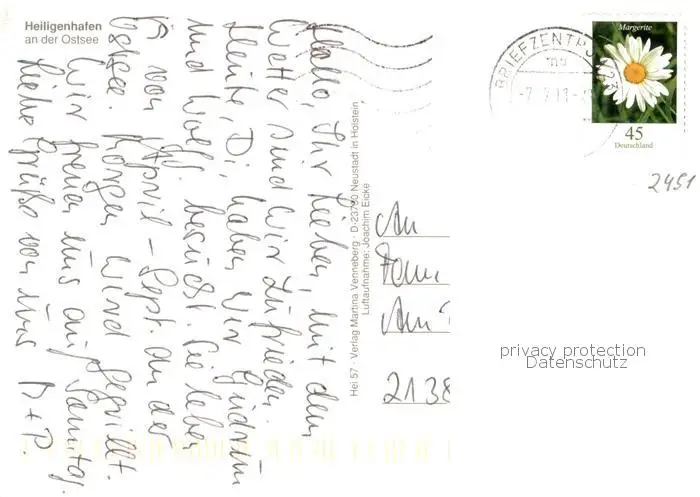 Heiligenhafen
an der Ostsee
Hallo, Ihr Lieben, mit dem
Wetter sind wir zufrieden.
Heute, Di. haben wir Gudrun
und Wolf. besucht. Sie leben
von April – Sept. an der
Ostsee. Morgen wird gegrillt.
Wir freuen uns auf Samstag.
Liebe Grüße von uns
Hei 57 · Verlag Martina Venneberg · D-23730 Neustadt in Holstein
Luftaufnahme: Joachim Eicke
BRIEFZENTRU
Margerite
45
Deutschland
2451
An
Fam
Am
2138
privacy protection
Datenschutz